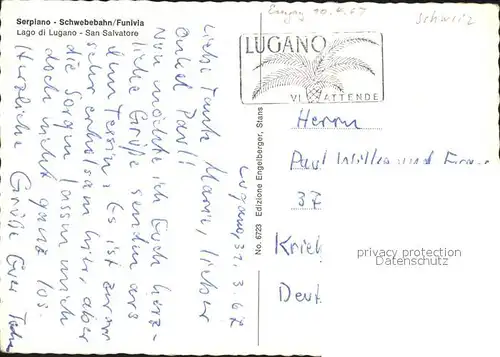 Serpiano - Schwebebahn/Funivia
Lago di Lugano - San Salvatore
Eingang 10.4.67
Schweiz
LUGANO
VI ATTENDE
Lugano, 31.3.67
Liebe Tante Marie, lieber
Onkel Paul!
Nun möchte ich Euch herz-
liche Grüße senden aus
dem Tessin. Es ist zwar
sehr erholsam hier, aber
die Sorgen lassen mich
doch nicht ganz los.
Herzliche Grüße Eure
No. 6723 Edizione Engelberger, Stans
Herrn
Paul und
37
Krief
Deut
privacy protection
Datenschutz